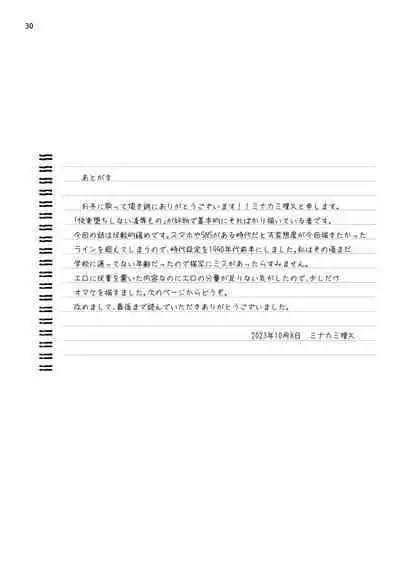 30
あとがき
お手に取って頂き誠にありがとうございます！！ミナカミ理久と申します。
「快楽堕ちしない凌辱もの」が好物で基本的にそればかり描いている者です。
今回の話は比較的痛めです。スマホやSNSがある時代だと不愉悦度が今回描きたかった
ラインを超えてしまうので、時代設定を1990年代前半にしました。私はその頃まだ
学校に通ってない年齢だったので描写にミスがあったらすみません。
エロに比重を置いた内容なのにエロの分量が足りない気がしたので、少しだけ
オマケを描きました。次のページからどうぞ。
改めまして、最後まで読んでいただきありがとうございました。
2023年10月8日　ミナカミ理久